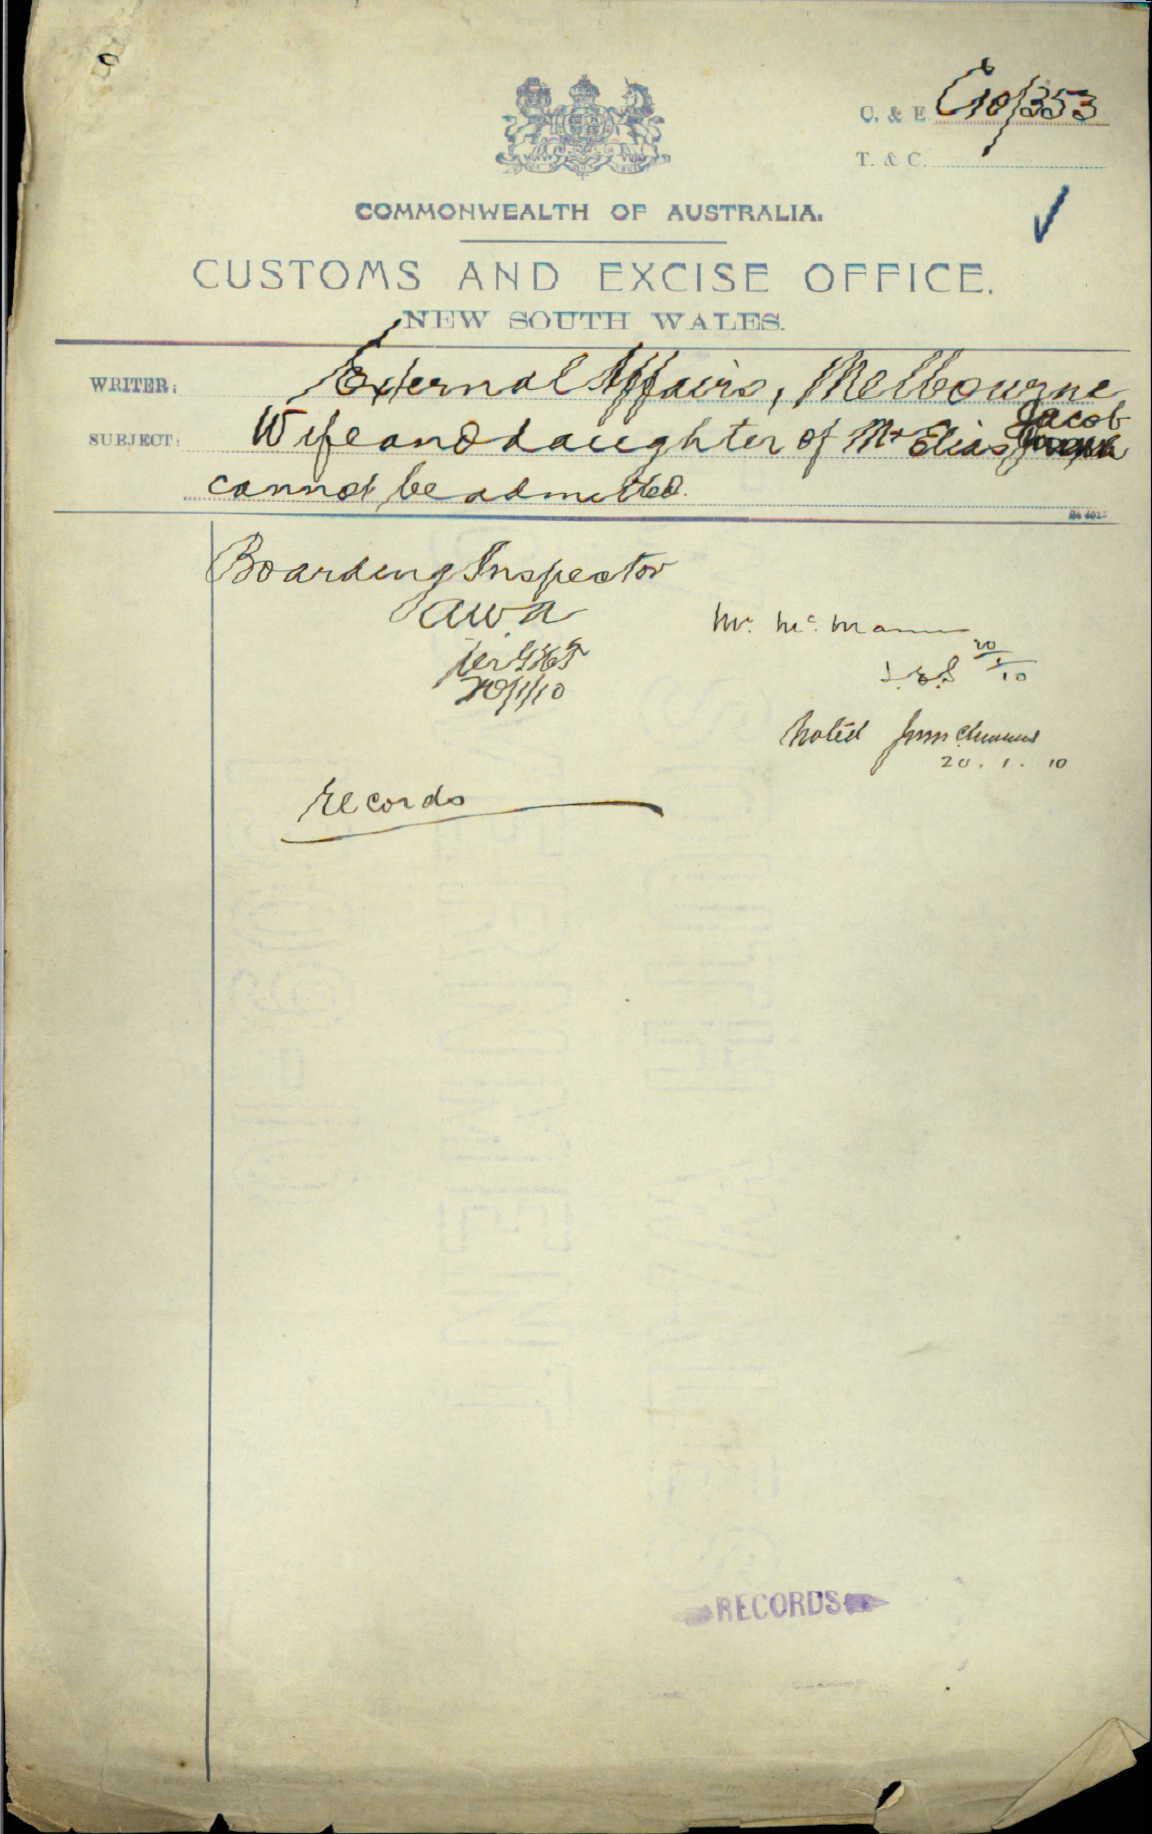 C. & E. C10/353
T. & C.
COMMONWEALTH OF AUSTRALIA.
CUSTOMS AND EXCISE OFFICE.
NEW SOUTH WALES.
WRITER: External Affairs, Melbourne
Jacob
SUBJECT: Wife and daughter of Mr Elias
cannot be admitted.
Boarding Inspector
20/1/10
Mr. McManus
20/1/10
Noted
20.1.10
Records
RECORDS